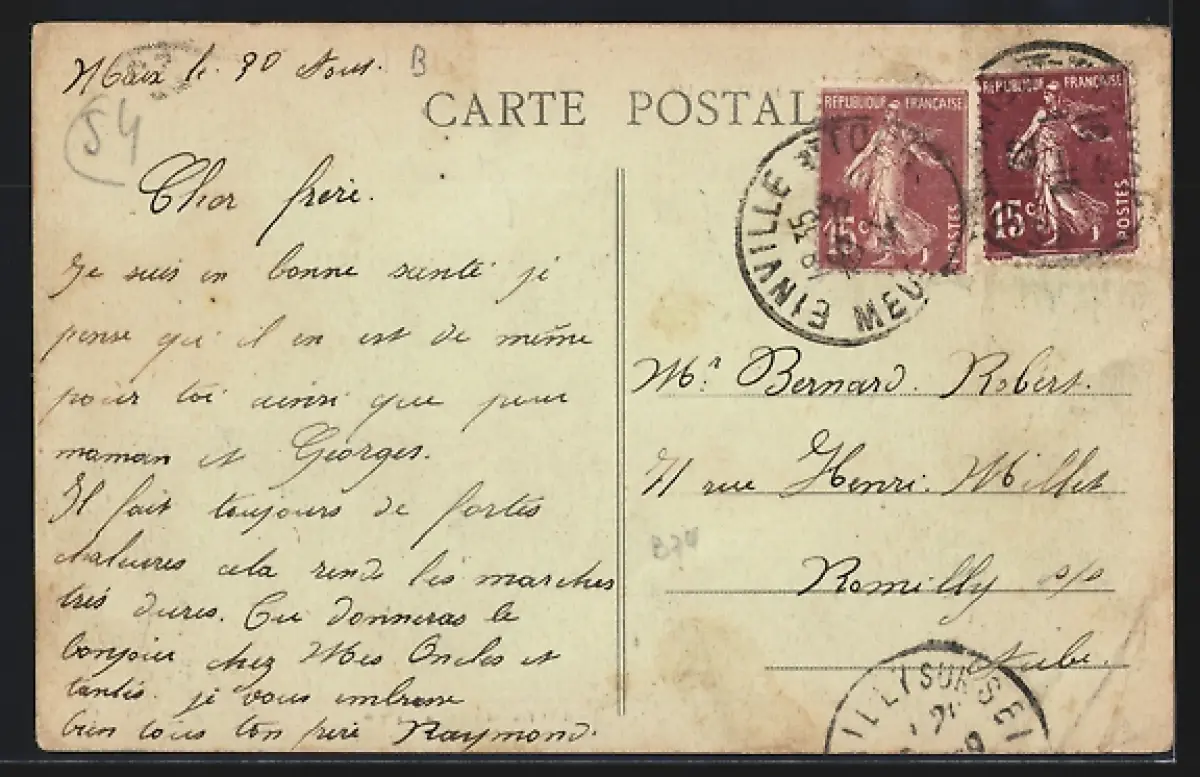 le 30 Aout. B
54
CARTE POSTAL
REPUBLIQUE FRANÇAISE
15c
POSTES
REPUBLIQUE FRANÇAISE
15c
POSTES
EINVILLE
MEU
8 35
Cher frère.
Je suis en bonne santé je
pense qu'il en est de même
pour toi ainsi que pour
maman et Georges.
Il fait toujours de fortes
chaleures cela rend les marches
très dures. Tu donneras le
bonjour chez Mes Oncles et
tantes. je vous embrasse
bien tous ton frère Raymond.
Mr. Bernard. Robert.
71 rue Henri. Millet
B74
Romilly s/s
Aube.
ILLY SUR SEI